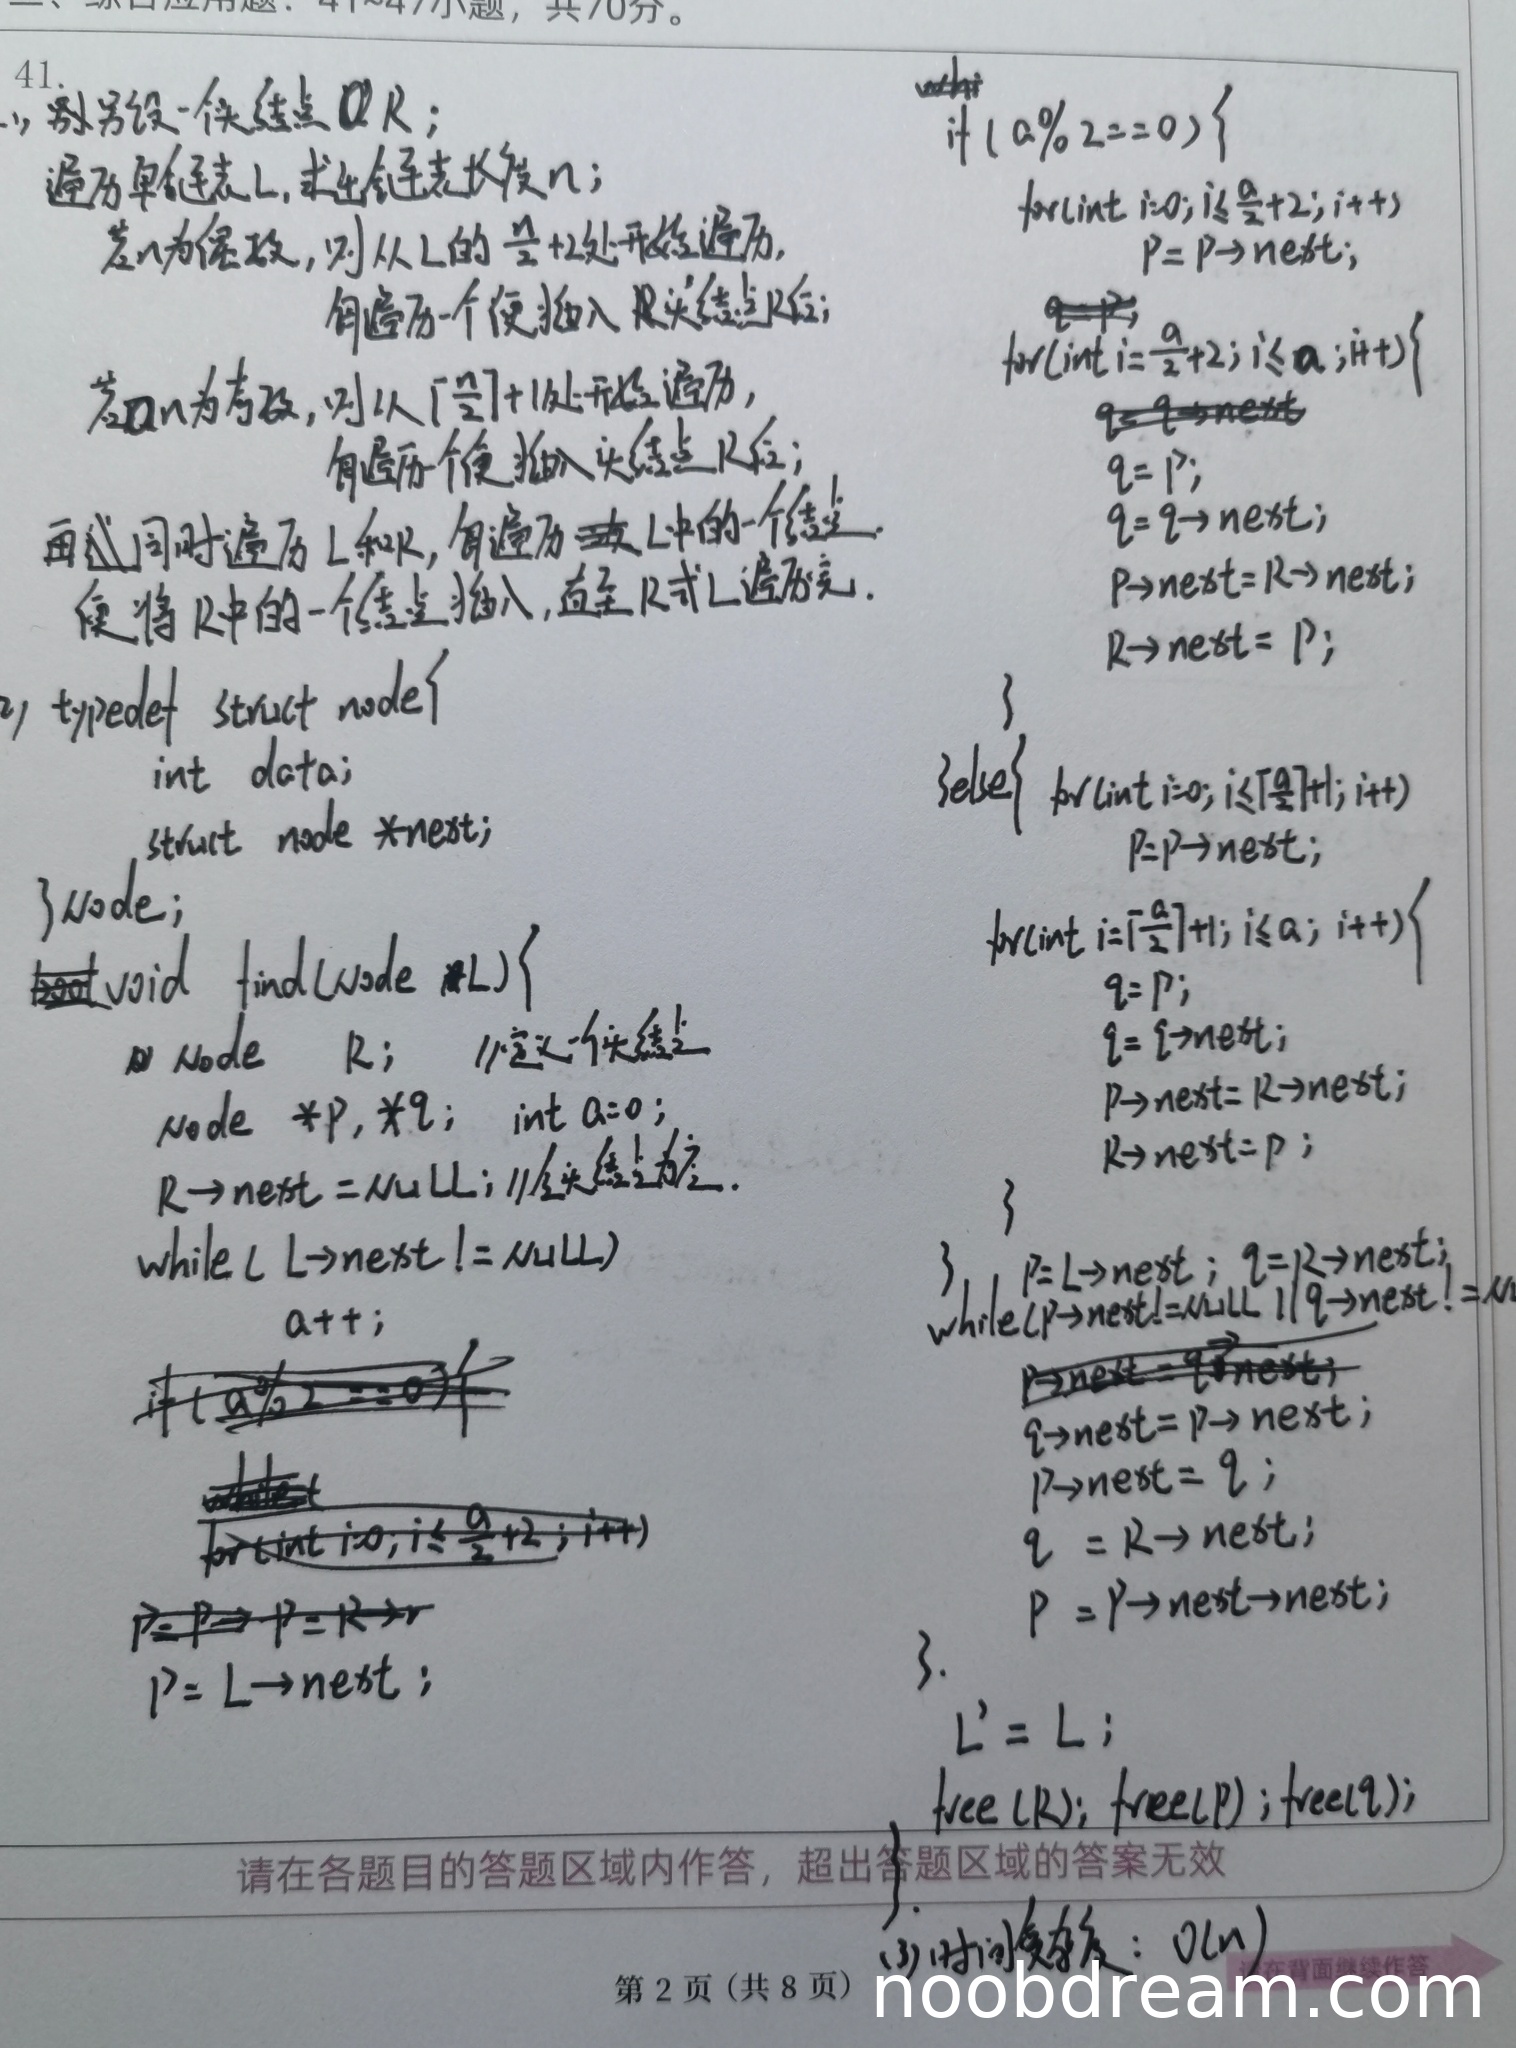 二、综合应用题：41~47小题，共70分。
41.
另设一个头结点 R；
遍历单链表L，求出链表长度n；
若n为偶数，则从L的 n/2 +2处开始遍历，
每遍历一个便插入头结点R后；
若n为奇数，则从⌈n/2⌉+1处开始遍历，
每遍历一个便插入头结点R后；
再同时遍历L和R，每遍历L中的一个结点，
便将R中的一个结点插入，直至R或L遍历完.
2) typedef struct node{
int data;
struct node *next;
}Node;
void find(Node *L){
Node R; //定义一个头结点
Node *p, *q; int a=0;
R→next=NULL; //头结点为空.
while( L→next!=NULL)
a++;
if( a%2==0){
for(int i=0; i≤ a/2 +2; i++)
P= L→next;
if( a%2==0){
for(int i=0; i≤ a/2 +2; i++)
P= P→next;
q=P;
for(int i= a/2 +2; i≤ a; i++){
q= q→next
q= P;
q=q→next;
P→next=R→next;
R→next= P;
}
}else{ for(int i=0; i≤⌈a/2⌉+1; i++)
P=P→next;
for(int i=⌈a/2⌉+1; i≤a; i++){
q=P;
q= q→next;
P→next=R→next;
R→next=P;
}
} P=L→next; q=R→next;
while(P→next!=NULL || q→next!=NU
P→next = q→next;
q→next=P→next;
P→next= q;
q = R→next;
P = P→next→next;
}.
L'= L;
free(R); free(P); free(q);
}.
请在各题目的答题区域内作答，超出答题区域的答案无效
(3)时间复杂度：O(n)
请在背面继续作答
第 2 页 (共 8 页)
noobdream.com